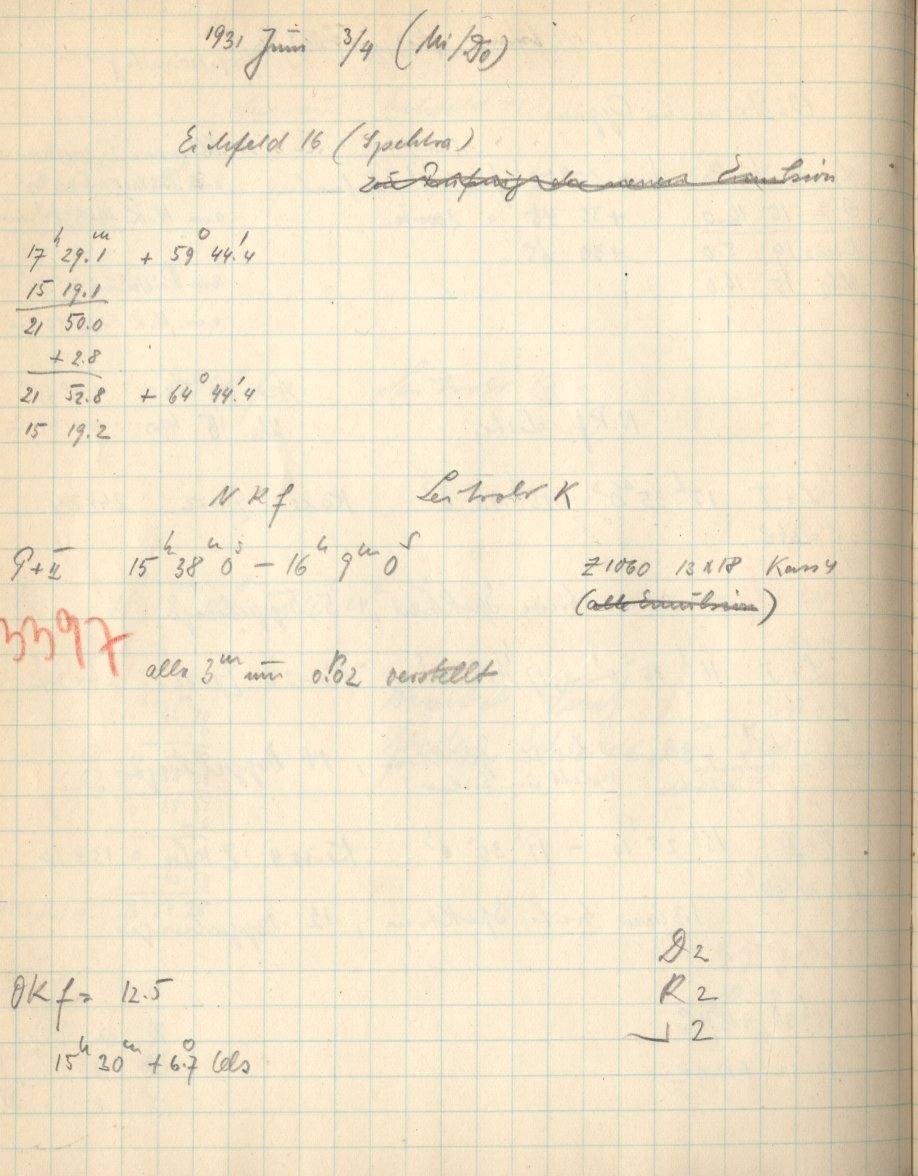 1931 Juni 3/4 (Mi/Do)
Eichfeld 16 (Spektra)
zur Prüfung der neuen Emulsion
17ʰ 29.1ᵐ + 59° 44.'4
15 19.1
21 50.0
+ 2.8
21 52.8 + 64° 44.'4
15 19.2
N K f. Leitrohr K
P+II 15ʰ 38ᵐ 0ˢ – 16ʰ 9ᵐ 0ˢ Z1060 13x18 Kass 4
(alte Emulsion)
3397
alle 3ᵐ um 0.02 verstellt
D 2
R 2
2
OK f = 12.5
15ʰ 30ᵐ + 6.°7 Cels